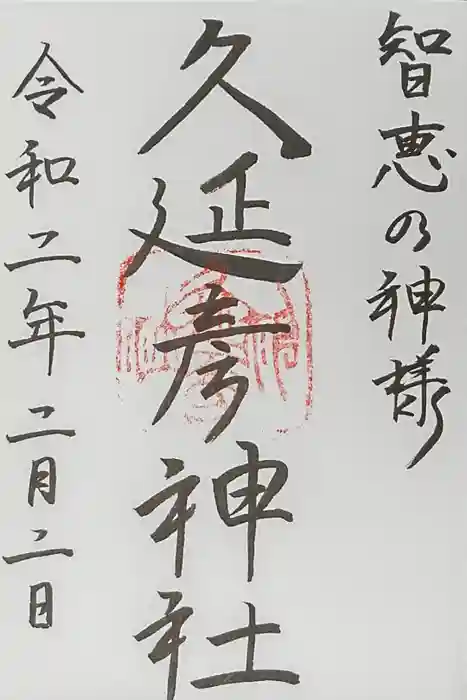 智恵の神様
久延彦神社
令和二年二月二日